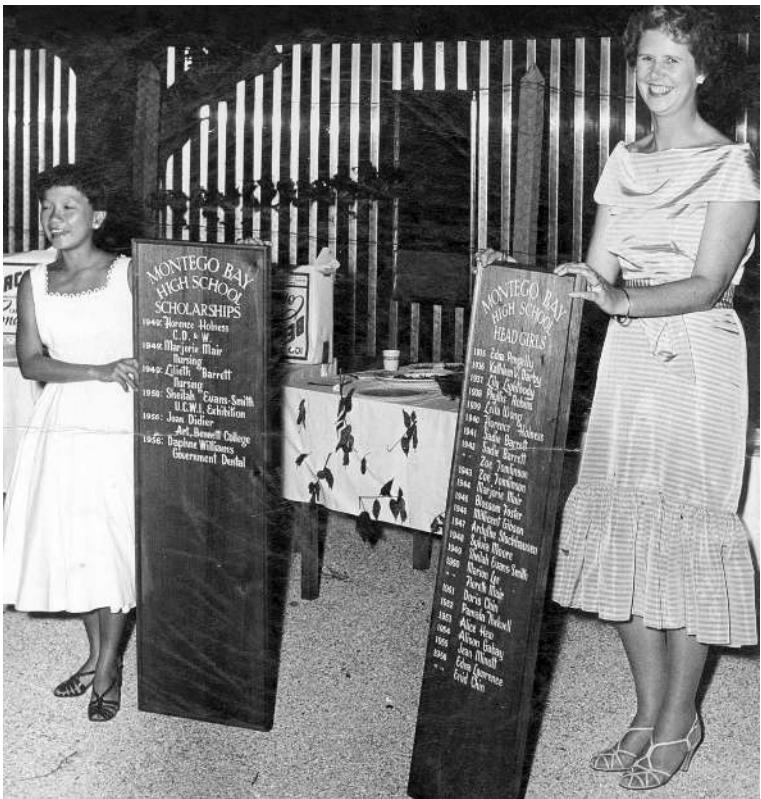 MONTEGO BAY
HIGH SCHOOL
SCHOLARSHIPS
1949: Florence Holness
C.D. & W.
1949: Marjorie Mair
Nursing
1949: Lilieth Barrett
Nursing
1950: Sheilah Evans-Smith
U.C.W.I. Exhibition
1955: Joan Didier
Art, Bennett College
1956: Daphne Williams
Government Dental
MONTEGO BAY
HIGH SCHOOL
HEAD GIRLS
1935 Edna Pengelly
1936 Kathleen V. Darley
1937 Lily Lightbody
1938 Phyllis Robins
1939 Leila Wong
1940 Florence Holness
1941 Sadie Barrett
1942 Sadie Barrett
" Zoe Tomlinson
1943 Zoe Tomlinson
1944 Marjorie Mair
1945 Blossom Foster
1946 Millicent Gibson
1947 Ardythe Stockhausen
1948 Sylvia Moore
1949 Sheilah Evans-Smith
1950 Marion Lee
" Floreth Mair
1951 Doris Chin
1952 Pamela
1953 Alice Hew
1954 Alison Gabay
1955 Jean Minott
1956 Edna Lawrence
" Enid Chin